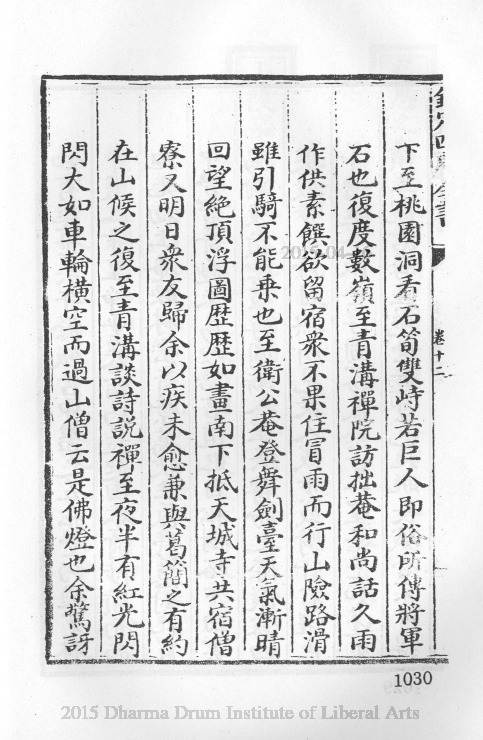 欽定四庫全書
卷十二
下至桃園洞看石筍雙峙若巨人即俗所傳將軍
石也復度數嶺至青溝禪院訪拙菴和尚話久雨
作供素饌欲留宿衆不果住冒雨而行山險路滑
雖引騎不能乗也至衛公菴登舞劍臺天氣漸晴
回望絶頂浮圖歴歴如畫南下抵天城寺共宿僧
寮又明日衆友歸余以疾未愈兼與葛簡之有約
在山候之復至青溝談詩説禪至夜半有紅光閃
閃大如車輪横空而過山僧云是佛燈也余驚訝
1030
2015 Dharma Drum Institute of Liberal Arts